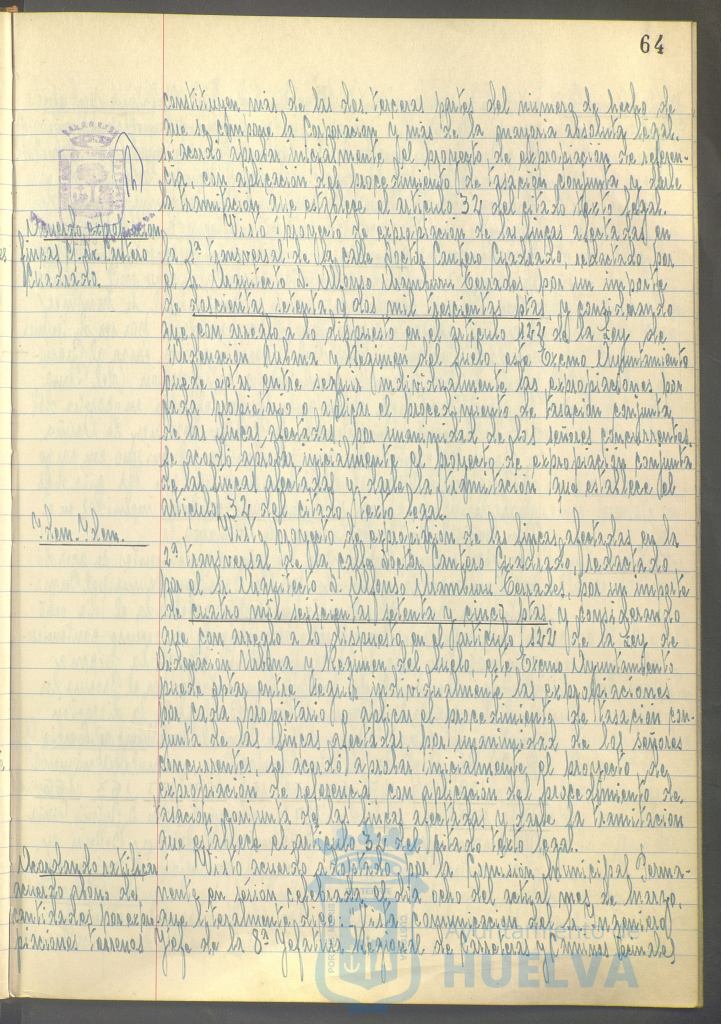 64
constituyen más de las dos terceras partes del número de hecho de
que se compone la Corporación y más de la mayoría absoluta legal,
se acordó aprobar inicialmente el proyecto de expropiación de referen-
cia, con aplicación del procedimiento de tasación conjunta y darle
la tramitación que establece el artículo 32 del citado texto legal.
Acuerdo expropiación
fincas C/. Dr. Cantero
Cuadrado.
Visto proyecto de expropiación de las fincas afectadas en
la 1ª transversal de la calle Doctor Cantero Cuadrado, redactado por
el Sr. Arquitecto D. Alfonso Aramburu Terrades, por un importe
de doscientas setenta y dos mil trescientas ptas. y considerando
que con arreglo a lo dispuesto en el artículo 122 de la Ley de
Ordenación Urbana y Régimen del Suelo, este Excmo Ayuntamiento
puede optar entre seguir individualmente las expropiaciones por
cada propietario o aplicar el procedimiento de tasación conjunta
de las fincas afectadas, por unanimidad de los señores concurrentes,
se acordó aprobar inicialmente el proyecto de expropiación conjunta
de las fincas afectadas y darle la tramitación que establece el
artículo 32 del citado texto legal.
Idem. Idem.
Visto proyecto de expropiación de las fincas afectadas en la
2ª transversal de la calle Doctor Cantero Cuadrado, redactado
por el Sr. Arquitecto D. Alfonso Aramburu Terrades, por un importe
de cuatro mil seiscientas setenta y cinco ptas. y considerando
que con arreglo a lo dispuesto en el artículo 122 de la Ley de
Ordenación Urbana y Régimen del Suelo, este Excmo Ayuntamiento
puede optar entre seguir individualmente las expropiaciones
por cada propietario o aplicar el procedimiento de tasación con-
junta de las fincas afectadas, por unanimidad de los señores
concurrentes, se acordó aprobar inicialmente el proyecto de
expropiación de referencia con aplicación del procedimiento de
tasación conjunta de las fincas afectadas y darle la tramitación
que establece el artículo 32 del citado texto legal.
Acordando ratificar
acuerdo abono de
cantidades por expro-
piaciones terrenos
Visto acuerdo adoptado por la Comisión Municipal Perma-
nente en sesión celebrada el día ocho del actual mes de marzo,
que literalmente dice: "Vista comunicación del Sr. Ingeniero
Jefe de la 8ª Jefatura Regional de Carreteras y Caminos Vecinales
HUELVA